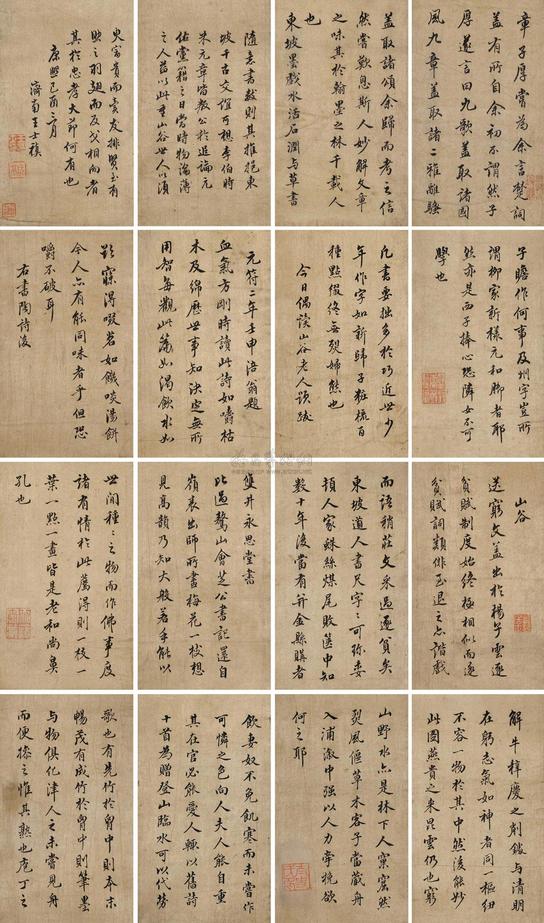 章子厚嘗為余言楚詞
蓋有所自余初不謂然子
厚遂言曰九歌蓋取諸國
風九章蓋取諸二雅離騷
蓋取諸頌余歸而考之信
然嘗歎息斯人妙解文章
之味其於翰墨之林千載人
也
東坡墨戲水活石潤與草書
隨意書戲則其推挹東
坡千古文誼可想李伯時
元章皆教公於追論元
祐黨籍之日當時物論薄
之人益以此重山谷世人以須
史富貴而雲友排臂去有
之羽翅而反戈相向者
其於忠孝大節何有也
康熙己酉二月
濟南王士稹
子瞻作何事及州字豈所
謂柳家新樣元和腳者耶
然亦是西子捧心恐隣女不可
學也
凡書要拙多於巧近世少
年作字如新婦子粧梳百
種點綴終無烈婦態也
今日偶讀山谷老人題跋
元符二年壬申涪翁題
血氣方剛時讀此詩如嚼枯
木及綿歷世事知決定無所
用智每觀此篇如渴飲水如
欲寐得啜茗如饑啖湯餅
今人亦有能同味者乎但恐
嚼不破耳
右書陶詩後
山谷
送窮文蓋出於揚子雲逐
貧賦制度始終極相似而逐
貧賦詞類俳至退之亦諧戲
而語稍莊文采過逐貧矣
東坡道人書尺字字可珍委
頓人家蛛絲煤尾敗篋中知
數十年後當有并金縣購者
雙井永思堂書
比過鷲山會芝公書記還自
嶺表出師所書梅花一枝想
見高韻乃知大般若手能以
世間種種之物而作佛事度
諸有情於此薦得則一枝一
葉一點一畫皆是老和尚鼻
孔也
解牛梓慶之削鐻與清明
在躬志氣如神者同一樞紐
不容一物於其中然後能妙
此圖燕貴之來昆雲仍也窮
山野水亦是林下人窠窟然
烈風偃草木客子當藏舟
入浦漵中強以人力牽挽欲
何之耶
飲妻奴不免飢寒而未嘗作
可憐之色向人夫人能自重
其在官必能愛人輒以舊詩
十首為贈登山臨水可以代勞
歌也有見竹於胸中則本末
暢茂有成竹於胸中則筆墨
與物俱化津人之未嘗見舟
而便操之惟其熟也庖丁之